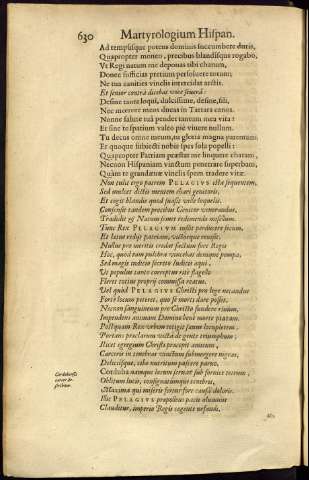 630 Martyrologium Hispan.
Ad tempusque potens dominis succumbere duris,
Quapropter moneo, precibus blandisque rogabo,
Ut Regi natum me deponas tibi charum,
Donec sufficias pretium persoluere totum;
Ne tua canities vinclis intereidat arctis.
Et senior contrà dicebat voce seuerâ:
Desine tanta loqui, dulcissime, desine, fili,
Nec mœrore meos ducas in Tartara canos.
Nonne salute tuâ pendet tantum mea vita?
Et sine te spatium valeo piè viuere nullum.
Tu decus omne meum, tu gloria magna parentum.
Et quoque subiecti nobis spes sola popelli:
Quapropter Patriam præstat me linquere charam,
Necnon Hispaniam vinctum penetrare superbam,
Quàm te grandæuæ vinclis spem tradere vitæ.
Non tulit ergo patrem PELAGIVS ista loquentem,
Sed mulcet dictis mentem chari genitoris.
Et cogit blandè quod suasit velle loquelis.
Consensit tandem precibus Genitor venerandus,
Tradidit & Natum sinuit redimendo misellum.
Tunc Rex PELAGIO iussit perducere secum.
Et lætus rediit patriam, vultuque
Nullus pro meritis credat factum fore Regis
Hoc, quod tam pulchra vincebat denique pompa,
Sed magis iudicio secreto Iudicis aequi,
Ut populus tanto correptus ritè flagello
Fleret totius proprij commissa reatus.
Vel quod PELAGIVS Christi pro lege necandus
Forte locum peteret, quo se morti dare posset.
Necnon sanguineum pro Christo fundere riuum,
Impendens animam Domino benè morte piatam.
Postquam Rex urbem tetigit saeuus locupletem,
Portans praeclarum victa de gente triumphum;
Ilicet egregium Christi præcepit amicum,
Carceris in tenebras vinctum submergere nigras,
Deliciisque, cibo nutritum pascere paruo.
Corduba namque locum seruat sub fornice tetrum,
Cordubensis carcer describitur.
Oblitum lucis, consignatumque tenebris,
Maxima qui miseris fertur fore causa doloris.
Illic PELAGIVS propositus pacis alumnus
Clauditur, imperio Regis cogente nefandi.